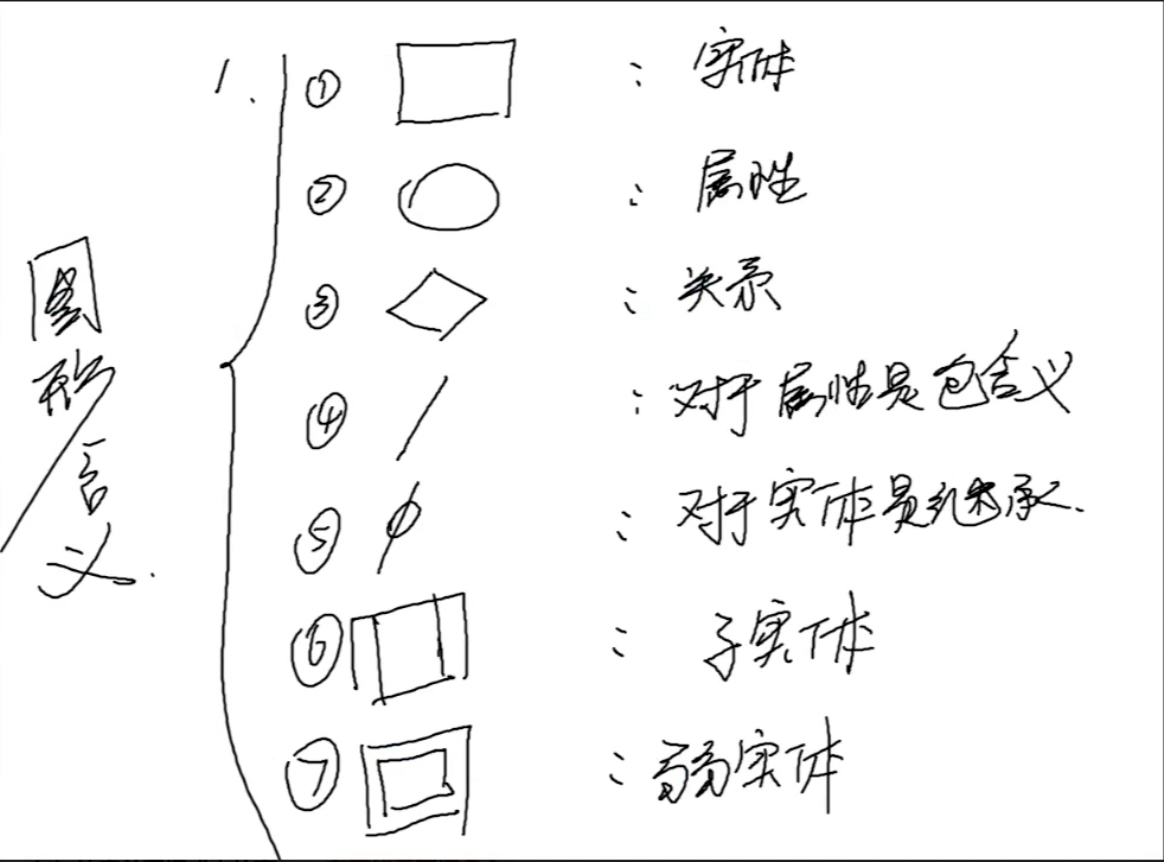 1.
图形含义.
① : 实体
② : 属性
③ : 关系
④ : 对于属性是包含义
⑤ : 对于实体是继承.
⑥ : 子实体
⑦ : 弱实体